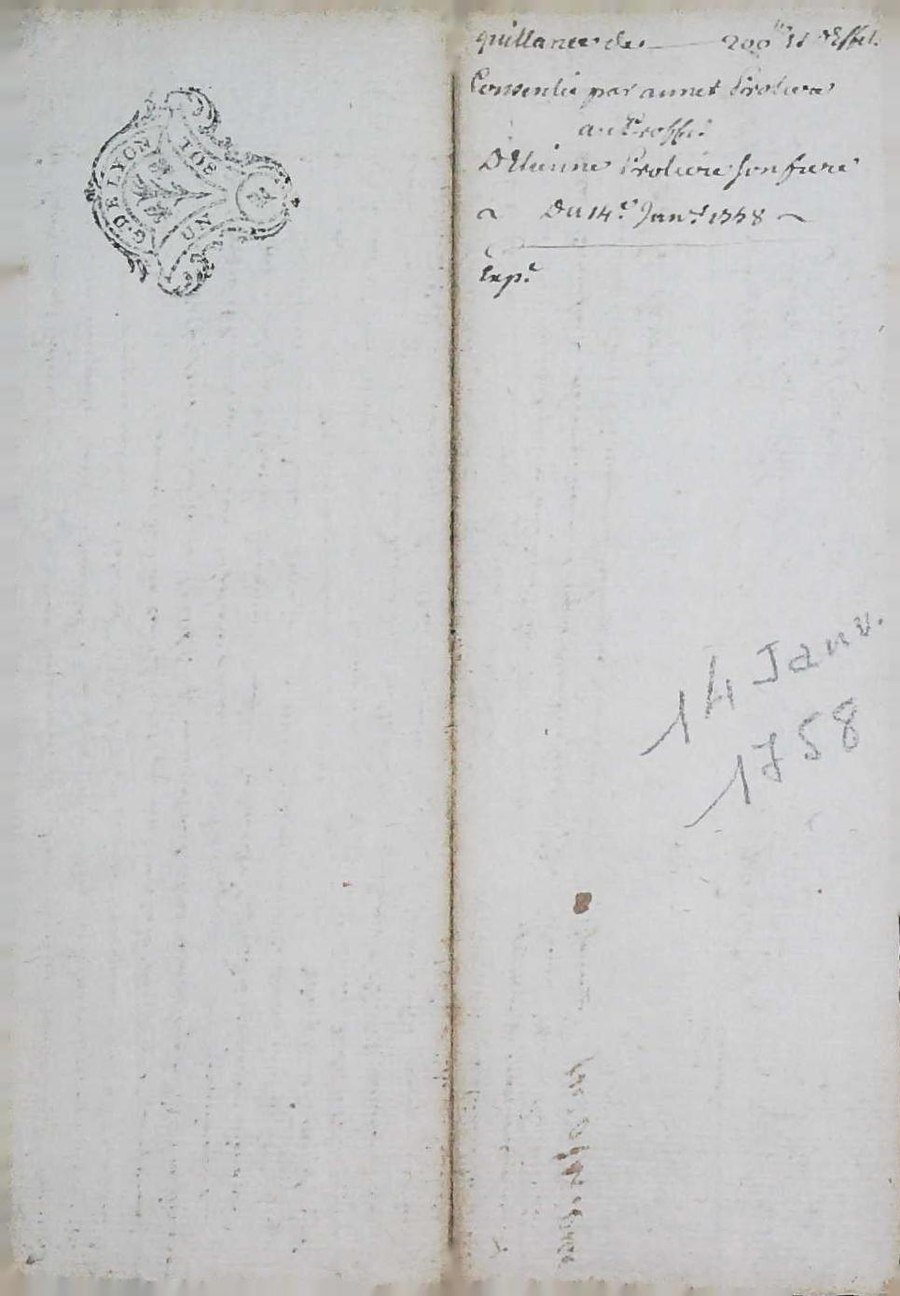 G. DE LYON
UN SOL
quittance de 200 lt
Consentie par annet Proliere
au Proffit
D'Etienne Proliere son frere
Du 14e Janer 1758
Expe
14 Janv.
1758